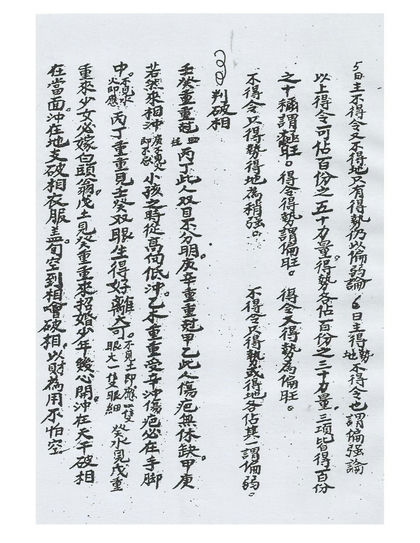 5日主不得令又不得地只有得勢仍以偏弱論 6日主得勢地不得令也謂偏強論
以上得令可佔百份之五十力量。得勢各佔百份之三十力量。三項皆得百份
之十稱謂極旺。得令得勢謂偏旺。 得令又得勢為偏旺。
不得令只得勢得地為稍強。 不得令只得勢或得地各佔其一謂偏弱。
判破相
壬癸重重冠四柱丙丁此人双目不分明。庚辛重重冠甲乙此人傷疤無休缺甲庚
若然來相沖庚不見即不忌小孩之時從高向低沖。乙木重重受辛沖傷疤必在手脚
中。不見水火即應丙丁重重見壬癸双眼生得好離奇不見土即應一隻眼大一隻眼細癸水見戊重
重來少女必嫁白頭翁。戊土見癸重重來招婚少年幾心開。沖在天干破相
在當面。沖在地支破相衣服蓋。旬空到相會破相。以財為用不怕空